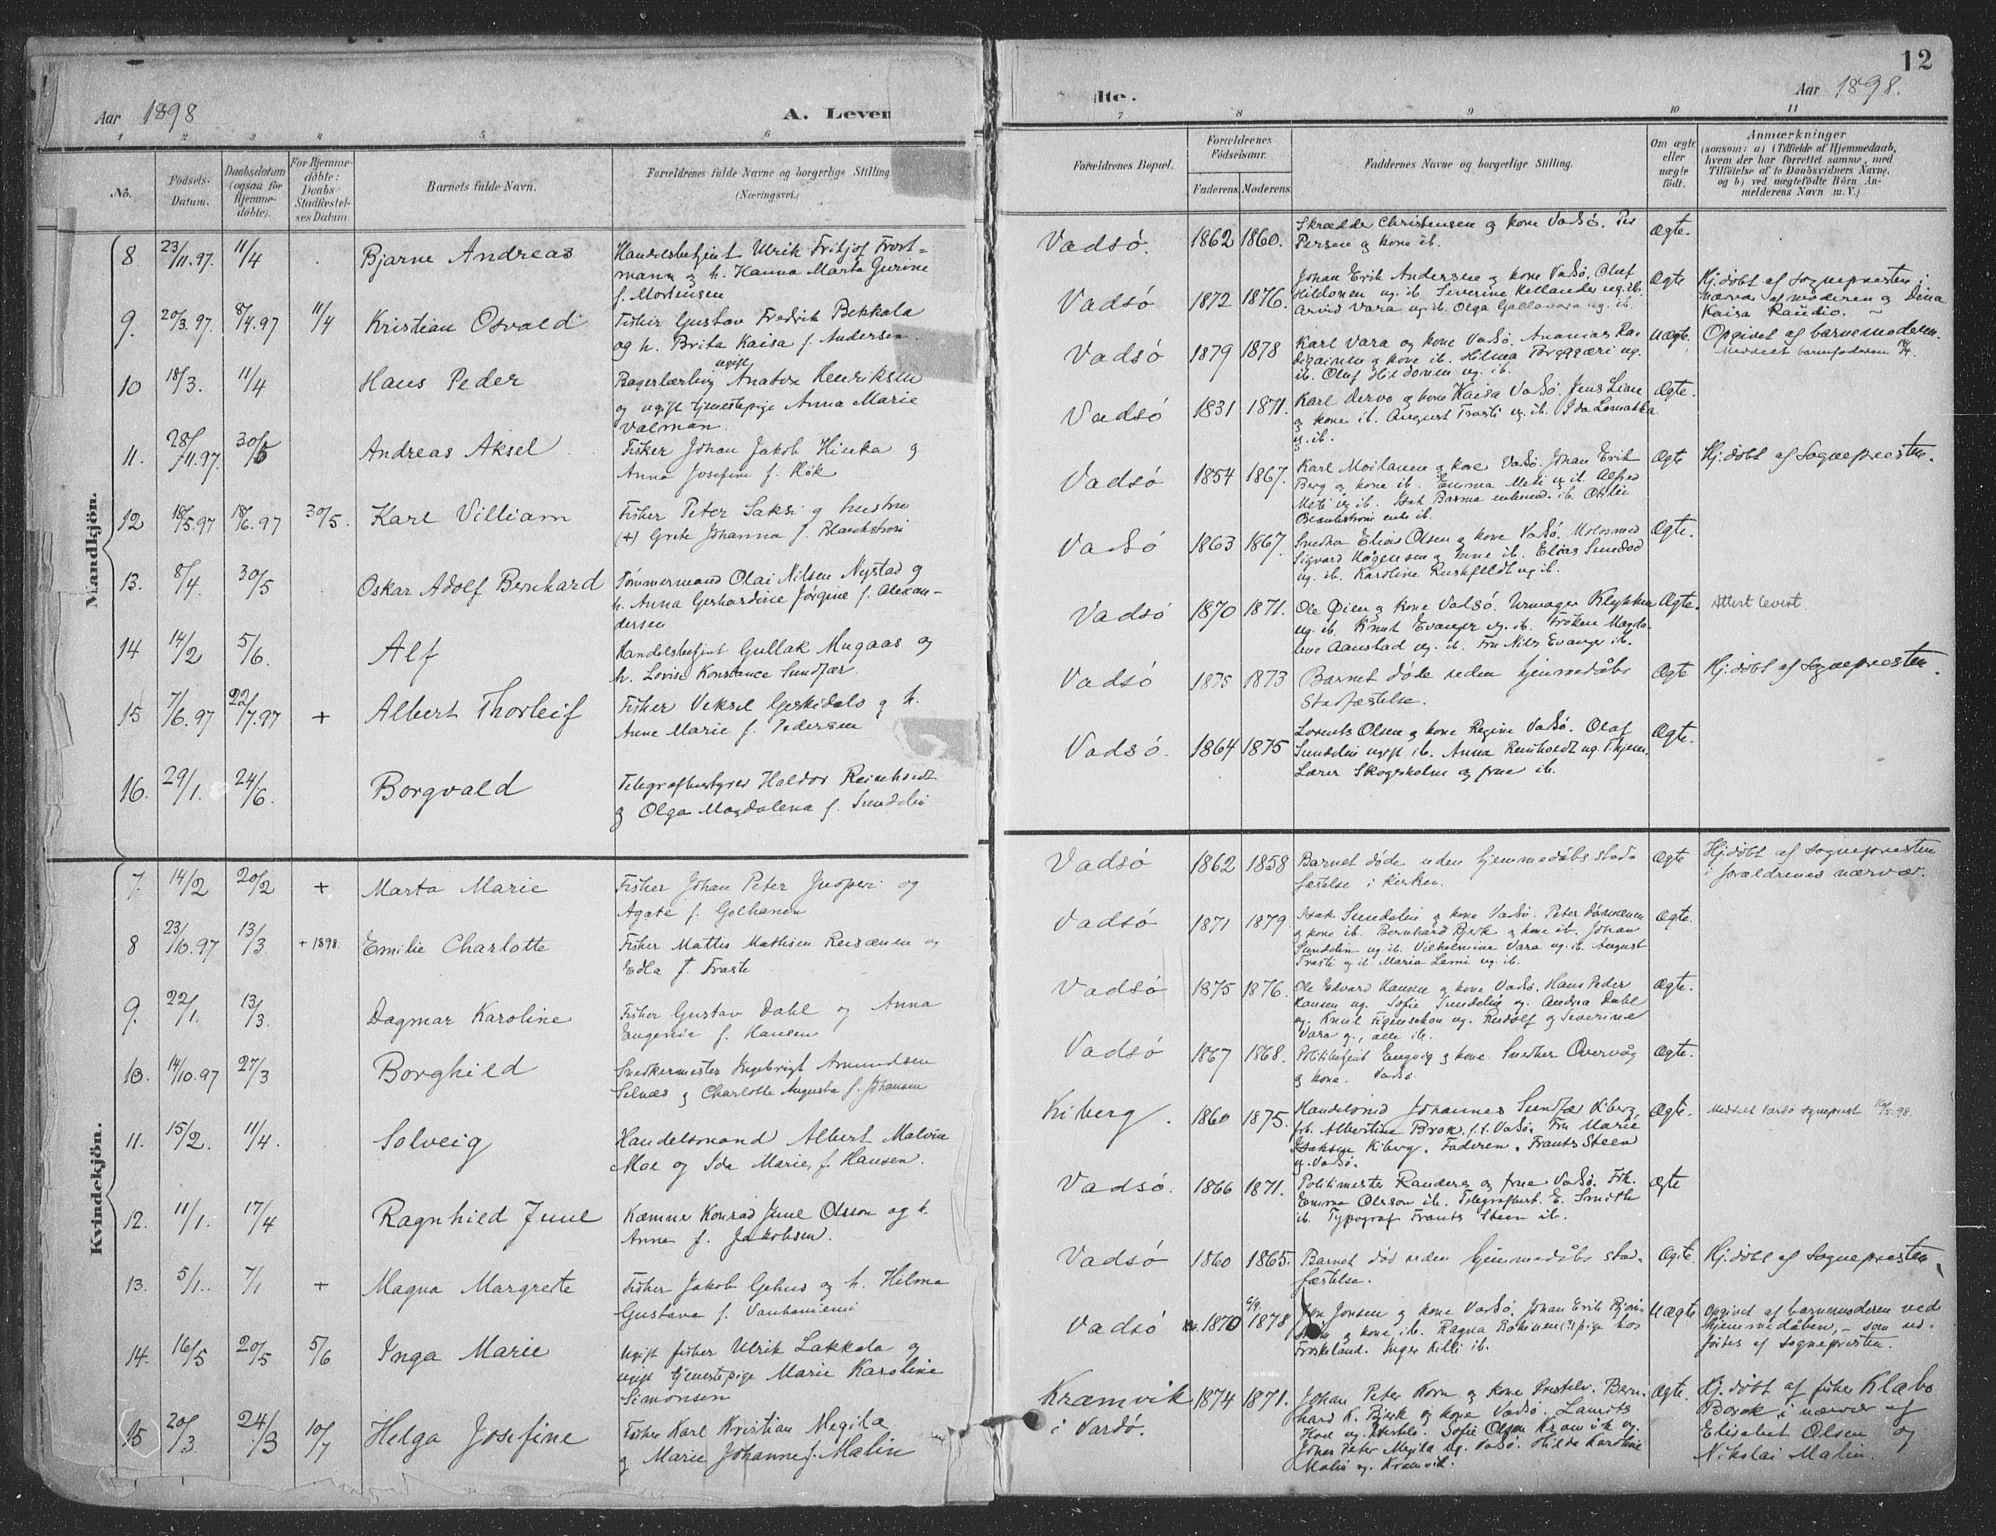 12
Aar 1898
A. Leven
dte.
Aar 1898.
1 2 3 4 5 6 7 8 9 10 11
No.
Fødsels-
Datum.
Daabsdatum
(ogsaa for
Hjemme-
døbte).
For Hjemme-
døbte:
Daabs-
Stadfestel-
ses Datum
Barnets fulde Navn.
Forældrenes fulde Navne og borgerlige Stilling
(Næringsvei.)
Forældrenes Bopæl.
Forældrenes
Fødselsaar.
Faderens. Moderens.
Faddernes Navne og borgerlige Stilling.
Om ægte
eller
uægte
født.
Anmærkninger
(saasom: a) i Tilfælde af Hjemmedaab,
hvem der har forrettet samme, med
Tilføielse af to Daabsvidners Navne,
og b) ved uægtefødte Børn An-
melderens Navn m. V.)
Mandkjøn.
8 23/11.97. 11/4 Bjarne Andreas
Handelsbetjent Ulrik Fritjof Frost-
mann og h. Hanna Marta Gurine
f. Mortensen
Vadsö. 1862 1860.
Skrædder Christensen og kone Vadsö. Per
Persen og kone ib.
Ægte.
9. 20/3.97. 8/4.97 11/4 Kristian Osvald
Fisker Gustav Fredrik Pekkala
og h. Brita Kaisa f. Andersen.
Vadsö 1872 1876.
Johan Erik Andersen og kone Vadsö. Oluf
Hildonen ug. ib. Severine Hellander ug. ib.
Arvid Vara ug. ib. Olga Gallavara ug. ib.
Ægte
Hj. döbt af Sognepresten i
nærvær af moderen og Dina
Kaisa Raudio.
10 18/3. 11/4 Hans Peder
ugift
Bagerlærling Anaton Henriksen
og ugift tjenestepige Anna Marie
Valman.
Vadsö 1879 1878
Karl Vara og kone Vadsö. Ananias
og kone ib. Hilma ug.
ib. Oluf Hildonen ug. ib.
Uægte.
Opgivet af barnemoderen.
11. 28/11.97 30/5 Andreas Aksel
Fisker Johan Jakob Hinka og
Anna Josefine f. Hök
Vadsö 1831 1871.
Karl Dervo og kone Kaisa Vadsö. Jens Lian
og kone ib. August Trasti ug. ib. Ida
ug. ib.
Ægte.
12 18/5.97 18/6.97 30/5. Karl Villiam
Fisker Peter Saksi og hustru
(+) Grete Johanna f.
Vadsö 1854 1867.
Karl Moilanen og kone Vadsö. Johan Erik
Berg og kone ib. Emma Meti ug. ib. Alfred
Meti ug. ib.
Ægte
Hj. döbt af Sognepresten.
13. 8/4 30/5 Oskar Adolf Bernhard
Tömmermand Olai Nilsen Nystad og
h. Anna Gerhardine Jörgine f. Alexan-
dersen
Vadsö 1863 1867.
Snedker Elias Olsen og kone Vadsö.
Sigvard Hågensen og kone ib. Elias
ug. ib. Karoline Ruskfeldt ug ib.
Ægte.
14 14/2 5/6. Alf
Handelsbetjent Gullak Mugaas og
h. Lovise Konstance Sundfær.
Vadsö 1870 1871.
Ole Öien og kone Vadsö. Urmager Klykken
ug. ib. Knut Evanger ug. ib. Fröken Magda-
lene Aanstad ug. ib. Fru Nils Evanger ib.
Ægte.
Attest levert.
15 7/6.97 22/7.97 + Albert Thorleif
Fisker Veksel Geskidalo og h.
Anne Marie f. Pedersen
Vadsö 1875 1873
Barnet döde uden hjemmedåbs
Stadfæstelse.
Ægte
Hj. döbt af Sognepresten.
16. 29/1. 24/6. Borgvald
Telegrafbestyrer Haldor Reinholdt
og Olga Magdalena f. Sundelin
Vadsö. 1864 1875
Lorents Olsen og kone Regine Vadsö. Olaf
Sundelin ugift ib. Anna Reinholdt ug.
Lærer Skogsholm og frue ib.
Ægte.
Kvindekjön.
7. 14/2 20/2 + Marta Marie
Fisker Johan Peter og
Agate f.
Vadsö 1862 1858
Barnet döde uden hjemmedåbs stad-
fæstelse i kirken.
Ægte
Hj. döbt af Sognepresten
i forældrenes nærvær.
8 23/10.97 13/3 + 1898. Emilie Charlotte
Fisker Mattis Mathisen og
Edla f. Trasti
Vadsö 1871 1879.
Isak Sundelin og kone Vadsö. Peter
og kone ib. Bernhard Bjerk og kone ib. Johan
Sundelin ug. ib. Vilhelmine Vara ug. ib. August
Trasti ug ib Maria Lemi ug. ib.
Ægte.
9. 22/1. 13/3. Dagmar Karoline
Fisher Gustav Dahl og Anna
Eugenie f. Hansen
Vadsö 1875 1876.
Ole Edvard Hansen og kone Vadsö. Hans Peder
Hansen ug. Sofie Sundelin ug. Andrea Dahl
ug. Knut Figenschou ug. Rudolf og Severine
Vara ug., alle ib.
Ægte.
10. 14/10.97 27/3 Borghild
Snedkermester Ingebrigt Amundsen
Selnæs og Charlotte Augusta f. Johansen
Vadsö 1867 1868.
Politibetjent Engvig og kone. Snedker Overvåg
og kone. Vadsö
Ægte.
11. 15/2. 11/4. Solveig
Handelsmand Albert Malvin
Moe og Ida Marie f. Hansen.
Kiberg. 1860 1875.
Handelsmd Johannes Sundfær Kiberg,
frk. Albertine Brok, f.t. Vadsö. Fru Marie
Isaksen Kiberg. Faderen. Frants Steen
ug. Vadsö.
Ægte.
12. 11/1. 17/4 Ragnhild Juul
Kæmner Konrad Juul Olsson og h.
Anna f. Jakobsen.
Vadsö. 1866 1871.
Politimester Randers og frue Vadsö. Frk.
Emma Olsson ib. Telegrafbest. E. Smith
ib. Typograf Frants Steen ib.
Ægte
13. 5/1. 7/1 + Magna Margrete
Fisker Jakob Gehus og h. Hilma
Gustava f. Vanhaniemi
Vadsö 1860 1865.
Barnet död uden hjemmedåbs stad-
fæstelse.
Ægte.
Hj. döbt af Sognepresten.
14. 16/5 20/5 5/6 Inga Marie
Ugift fisker Ulrik Lakkala og
ugift tjenestepige Marie Karoline
Simonsen
Vadsö 1870 1878
Jonsen og kone Vadsö. Johan Erik
og kone ib. Ragna pige hos
Froskeland. Inger Killi ib.
Uægte
Opgivet af barnemoderen ved
hjemmedåben, – som ud-
förtes af Sognepresten.
15 20/3. 24/3 10/7 Helga Josefine
Fisker Karl Kristian Megila
og Marie Johanne f. Malin
Kramvik
i Vardö.
1874 1871.
Johan Peter Korn og kone Prestelv. Bern-
hard K. Bjerk og kone Vadsö. Laurits
ug. Sofie Olsen Kramvik ug.
Johan Peter Megila ug. Vadsö. Hilda Karoline
Malin ug. Kramvik.
Ægte.
Hj. döbt af fisker Klabo
Borok i nærvær af
Elisabet Olsen og
Nikolai Malin.